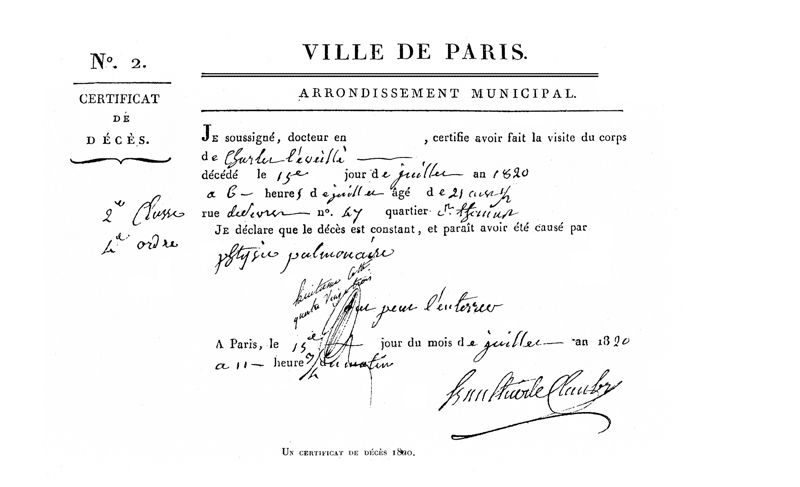 No. 2.
CERTIFICAT
DE
DÉCÈS.
2e Classe
4e ordre
VILLE DE PARIS.
ARRONDISSEMENT MUNICIPAL.
JE soussigné, docteur en , certifie avoir fait la visite du corps
de Charles l'éveillé
décédé le 15e jour de juillet an 1820
a 6 heures de juillet âgé de 21 ans 1/2
rue de no. 47 quartier St
JE déclare que le décès est constant, et paraît avoir été causé par
phtysie pulmonaire
quatre Vingt
peut l'enterrer
A Paris, le 15e jour du mois de juillet an 1820
a 11 heure du matin
UN CERTIFICAT DE DÉCÈS 1820.